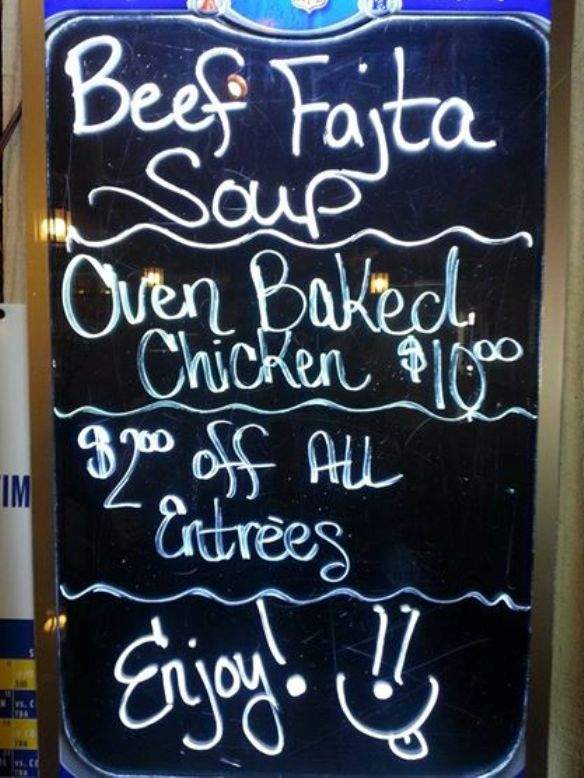 Beef Fajta
Soup
Oven Baked
Chicken $10.00
$2.00 off All
Entrèes
Enjoy! !!
IM
vs. C
TBA
vs. C
TBA